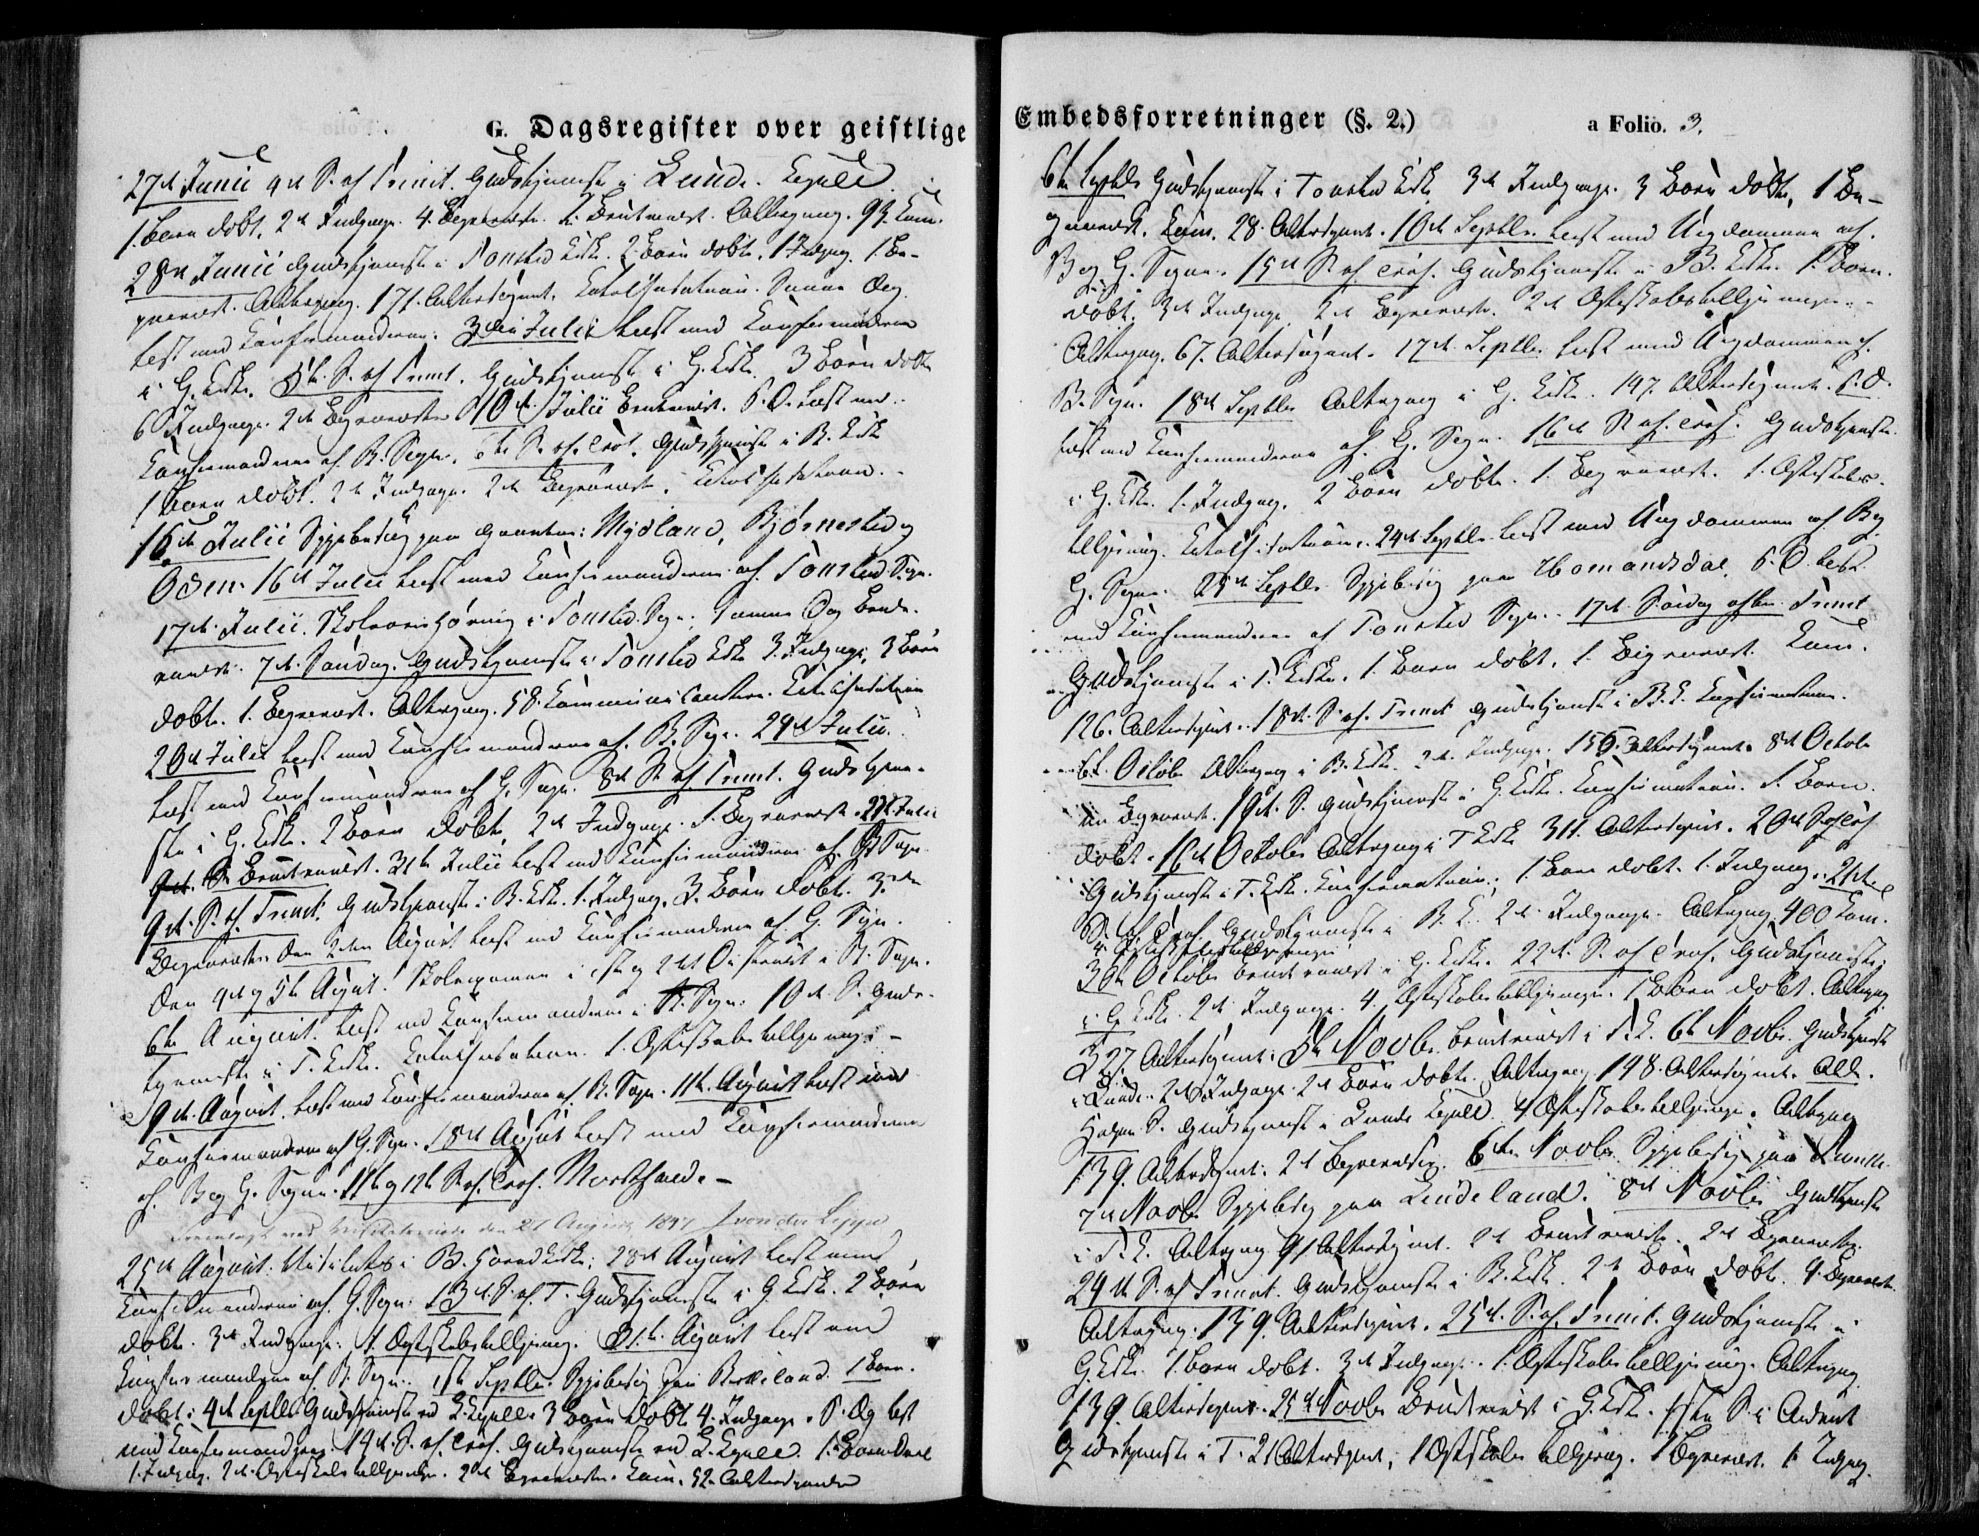 G. Dagsregister over geistlige
27d Junii 4d S. af Trinit. Gudstjeneste i Lunde Capell
1. Barn døbt. 2d Indgange. 4. Begravelse. Altergang. 93 Com.
28d Junii Gudstjeneste i Tonsted Kirke. 2 Børn døbt. 1 Indgang. 1. Be-
gravelse. Altergang. 171. Altersgjæst. Catechisation. Samme Dag
læst med Confirmanderne. 3die Julii læst med Confirmanderne
i G. Kirke. 5te S. af Trinit. Gudstjeneste i G. Kirke. 3 Børn døbt
6 Indgange. 2d Begravelser 10d Julii Brudevielse. S. D. læst med
Confirmanderne af B. Sogn. 6te S. af Tref. Gudstjeneste i B. Kirke
1 Barn døbt. 2d Indgange. 2d Begravelse. Catechisation.
15de Julii Sygebesøg paa Gaardene: Mydland, Bjørnestad og
Osen. 16d Julii læst med Confirmanderne af Tonsted Sogn.
17d Julii. Skoleoverhøring i Tonsted Sogn. samme Dag Brude-
vielse. 7d Søndag. Gudstjeneste i Tonsted Kirke 3. Indgange, 3 Børn
døbt. 1. Begravelse. Altergang. 58. Communicantere. Catechisation
20d Julii læst med Confirmanderne af B. Sogn. 24d Julii.
læst med Confirmanderne af G. Sogn. 8d S. af Trinit. Gudstjene-
ste i G. Kirke. 2 Børn døbt. 2d Indgange. 1. Begravelse.
Brudevielse. 31te Julii læst med Confirmanderne af B Sogn
9d S. af Trinit. Gudstjeneste i B. Kirke. 1. Indgang. 3. Børn døbt. 3de
Begravelser. Den 2den August læst med Confirmanderne af G. Sogn.
Den 4d og 5te August. Skoleexamen i 1ste og 2det District i B. Sogn.
6te August. læst med Confirmanderne i B. Sogn. 10d S. Guds-
tjeneste i T. Kirke. Catechisation. 1. Ægteskabs tillysning.
9d August. læst med Confirmanderne af B. Sogn. 11te August læst med
Confirmanderne af G. Sogn. 18d August læst med Confirmanderne
af B og G. Sogn. 11te og 12te S. af Tref. Morthsund.
Foreviist ved Visitatsen den 27 August 1847 J von der Lippe
25d August. Visitats i B. Hovedkirke. 28d August læst med
Confirmanderne af G. Sogn. 13d S. af T. Gudstjeneste i G. Kirke. 2 Børn
døbt. 3d Indgange. 1. Ægteskabstillysning. 31te August læst med
Confirmanderne af B. Sogn. 1ste Septbr. Sygebesøg paa Birkeland. 1 Barn.
døbt. 4d Septbr Gudstjeneste ved L. Capell 3 Børn døbt 4. Indgange. S. Dag læst
med Confirmanderne. 14d S. af Tref. Gudstjeneste ved L. Capell. 1. Barn døbt
1. Indgang. 2d Ægteskabs tillysninger. 2d Begravelser. Com. 52. Altersgjæster
Embedsforretninger (§. 2.)
a Folio. 3.
6te Septbr Gudstjeneste i Tonsted Kirke, 3d Indgange. 3 Børn døbt, 1 Be-
gravelse. Com. 28. Altersgjæst. 10d Septbr. læst med Ungdommen af
B og G. Sogne. 15d S. af Tref. Gudstjeneste i B. Kirke. 1. Barn.
døbt. 3d Indgange. 2d Begravelser. 2d Ægteskabs tillysninger.
Altergang. 67. Altersgjæst. 17d Septbr læst med Ungdommen af
B. Sogn. 18d Septbr Altergang i G. Kirke. 147 Altersgjæst. S. D.
læst med Confirmanderne af G. Sogn. 16d S. af Tref. Gudstjeneste
i G. Kirke. 1. Indgang. 2 Børn døbt. 1. Begravelse. 1. Ægteskabs-
tillysning. Catechisation. 24d Septbr. læst med Ungdommen af B og
G. Sogne. 25d Septbr. Sygebesøg paa Homandsdal. S. D. læst
med Confirmanderne af Tonsted Sogn. 17d Søndag after Trinit
Gudstjeneste i T. Kirke. 1. Barn døbt. 1. Begravelse. Com.
126. Altersgjæst. 18d S. af Trinit Gudstjeneste i B. K. Confirmation.
6te October Altergang i B. Kirke. 2d Indgange. 156 Altersgjæst. 8d October
en Begravelse. 19d S. Gudstjeneste i G. Kirke. Confirmation. 1. Barn.
døbt. 16d October Altergang i T Kirke 311. Altersgjæst. 20d S. af Tref
Gudstjeneste i T. Kirke. Confirmation. 1 Barn døbt. 1. Indgang. 21de
S. af Tref Gudstjeneste i B. K. 2d Indgange. Altergang. 400 Com.
30te October Brudevielse i G. Kirke. 22d S. af Tref. Gudstjeneste
i G Kirke. 2d Indgange. 4. Ægteskabs tillysninger. 1 Barn døbt. Altergang
327. Altersgjæst. 5te Novbr. Brudevielse i T. K. 6te Novbr. Gudstjeneste
i Lunde. 2d Indgange. 2d Børn døbt. Altergang 148. Altersgjæst. Alle
Helgen S. Gudstjeneste i Lunde Capell. 4 Ægteskabs tillysninger. Altergang
139. Altersgjæst. 2d Begravelser. 6te Novbr. Sygebesøg paa
7d Novbr Sygebesøg paa Lindeland. 8d Novbr Gudstjeneste
i T. K. Altergang 91 Altersgjæst. 2d Brudevielser. 2d Begravelser
24d S. af Trinit. Gudstjeneste i B. Kirke. 2d Børn døbt. 4. Begravelser.
Altergang. 139. Altersgjæst. 25d S. af Trinit. Gudstjeneste i
G. Kirke. 1. Barn døbt. 3d Indgange. 1. Ægteskabs tillysning. Altergang
139. Altersgjæst. 25d Novbr Brudevielse i G. Kirke. 1ste S. i Advent
Gudstjeneste i T. 21 Altersgjæst, 1 Ægteskabs tillysning. 1 Begravelse. 1 Indgang.